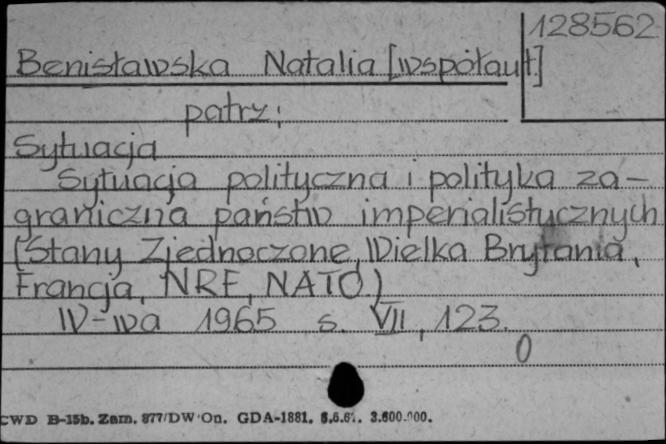 128562
Benisławska Natalia [współaut.]
patrz:
Sytuacja
Sytuacja polityczna i polityka za-
graniczna państw imperialistycznych
(Stany Zjednoczone, Wielka Brytania,
Francja, NRF, NATO)
W-wa 1965 s. VII, 123.
0
CWD B-15b. Zam. 877/DW On. GDA-1881. 3.600.000.